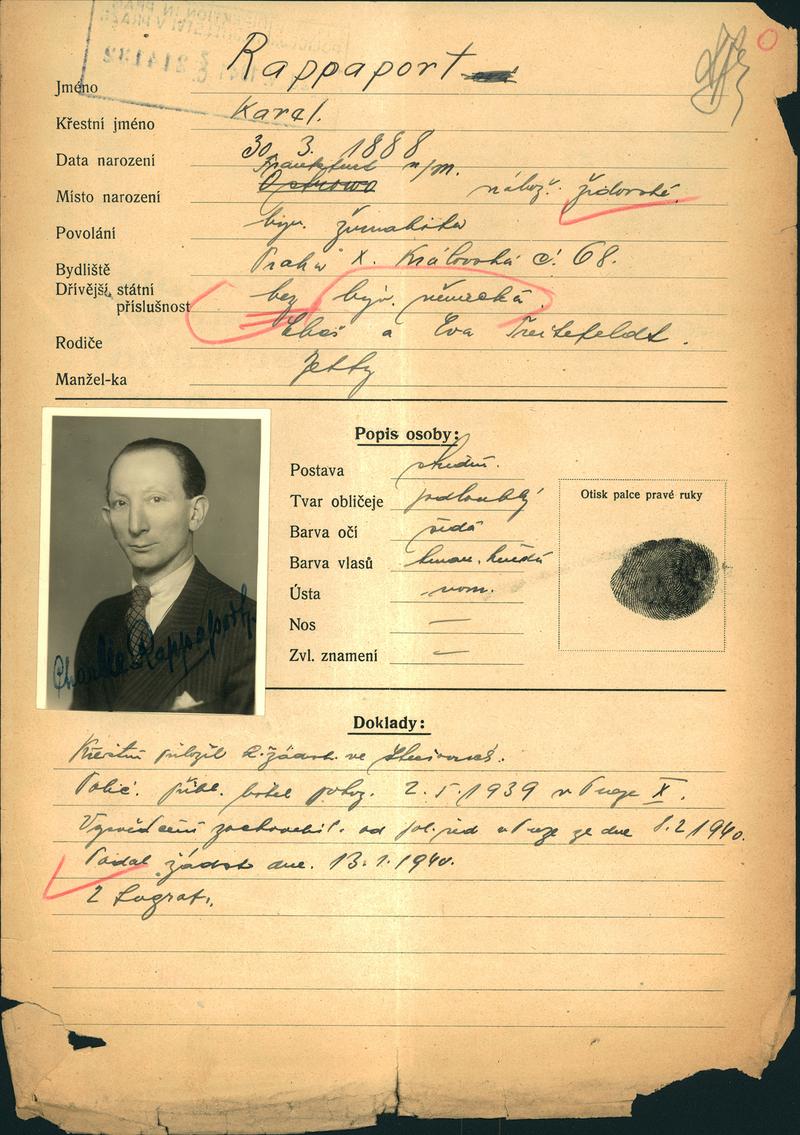 Rappaport
Jméno
Křestní jméno Karel.
Data narození 30. 3. 1888
Frankfurt n/m.
Místo narození Ostrowo nábož. židovské.
Povolání býv. žurnalista
Bydliště Praha X. Královská č. 68.
Dřívější státní příslušnost bez býv. německá.
Rodiče a Eva
Manžel-ka Jetty
Popis osoby:
Postava střední.
Tvar obličeje podlouhlý
Barva očí šedá
Barva vlasů tmav. hnědá
Ústa norm.
Nos —
Zvl. znamení —
Otisk palce pravé ruky
Charlie Rappaport
Doklady:
přiložil k žádosti ve
Polic. přihl. 2. 5. 1939 v Praze X.
Vysvědčení zachovalosti od pol. řed. v Praze ze dne 1940.
Podal žádost dne. 13. 1. 1940.
2 fotograf.